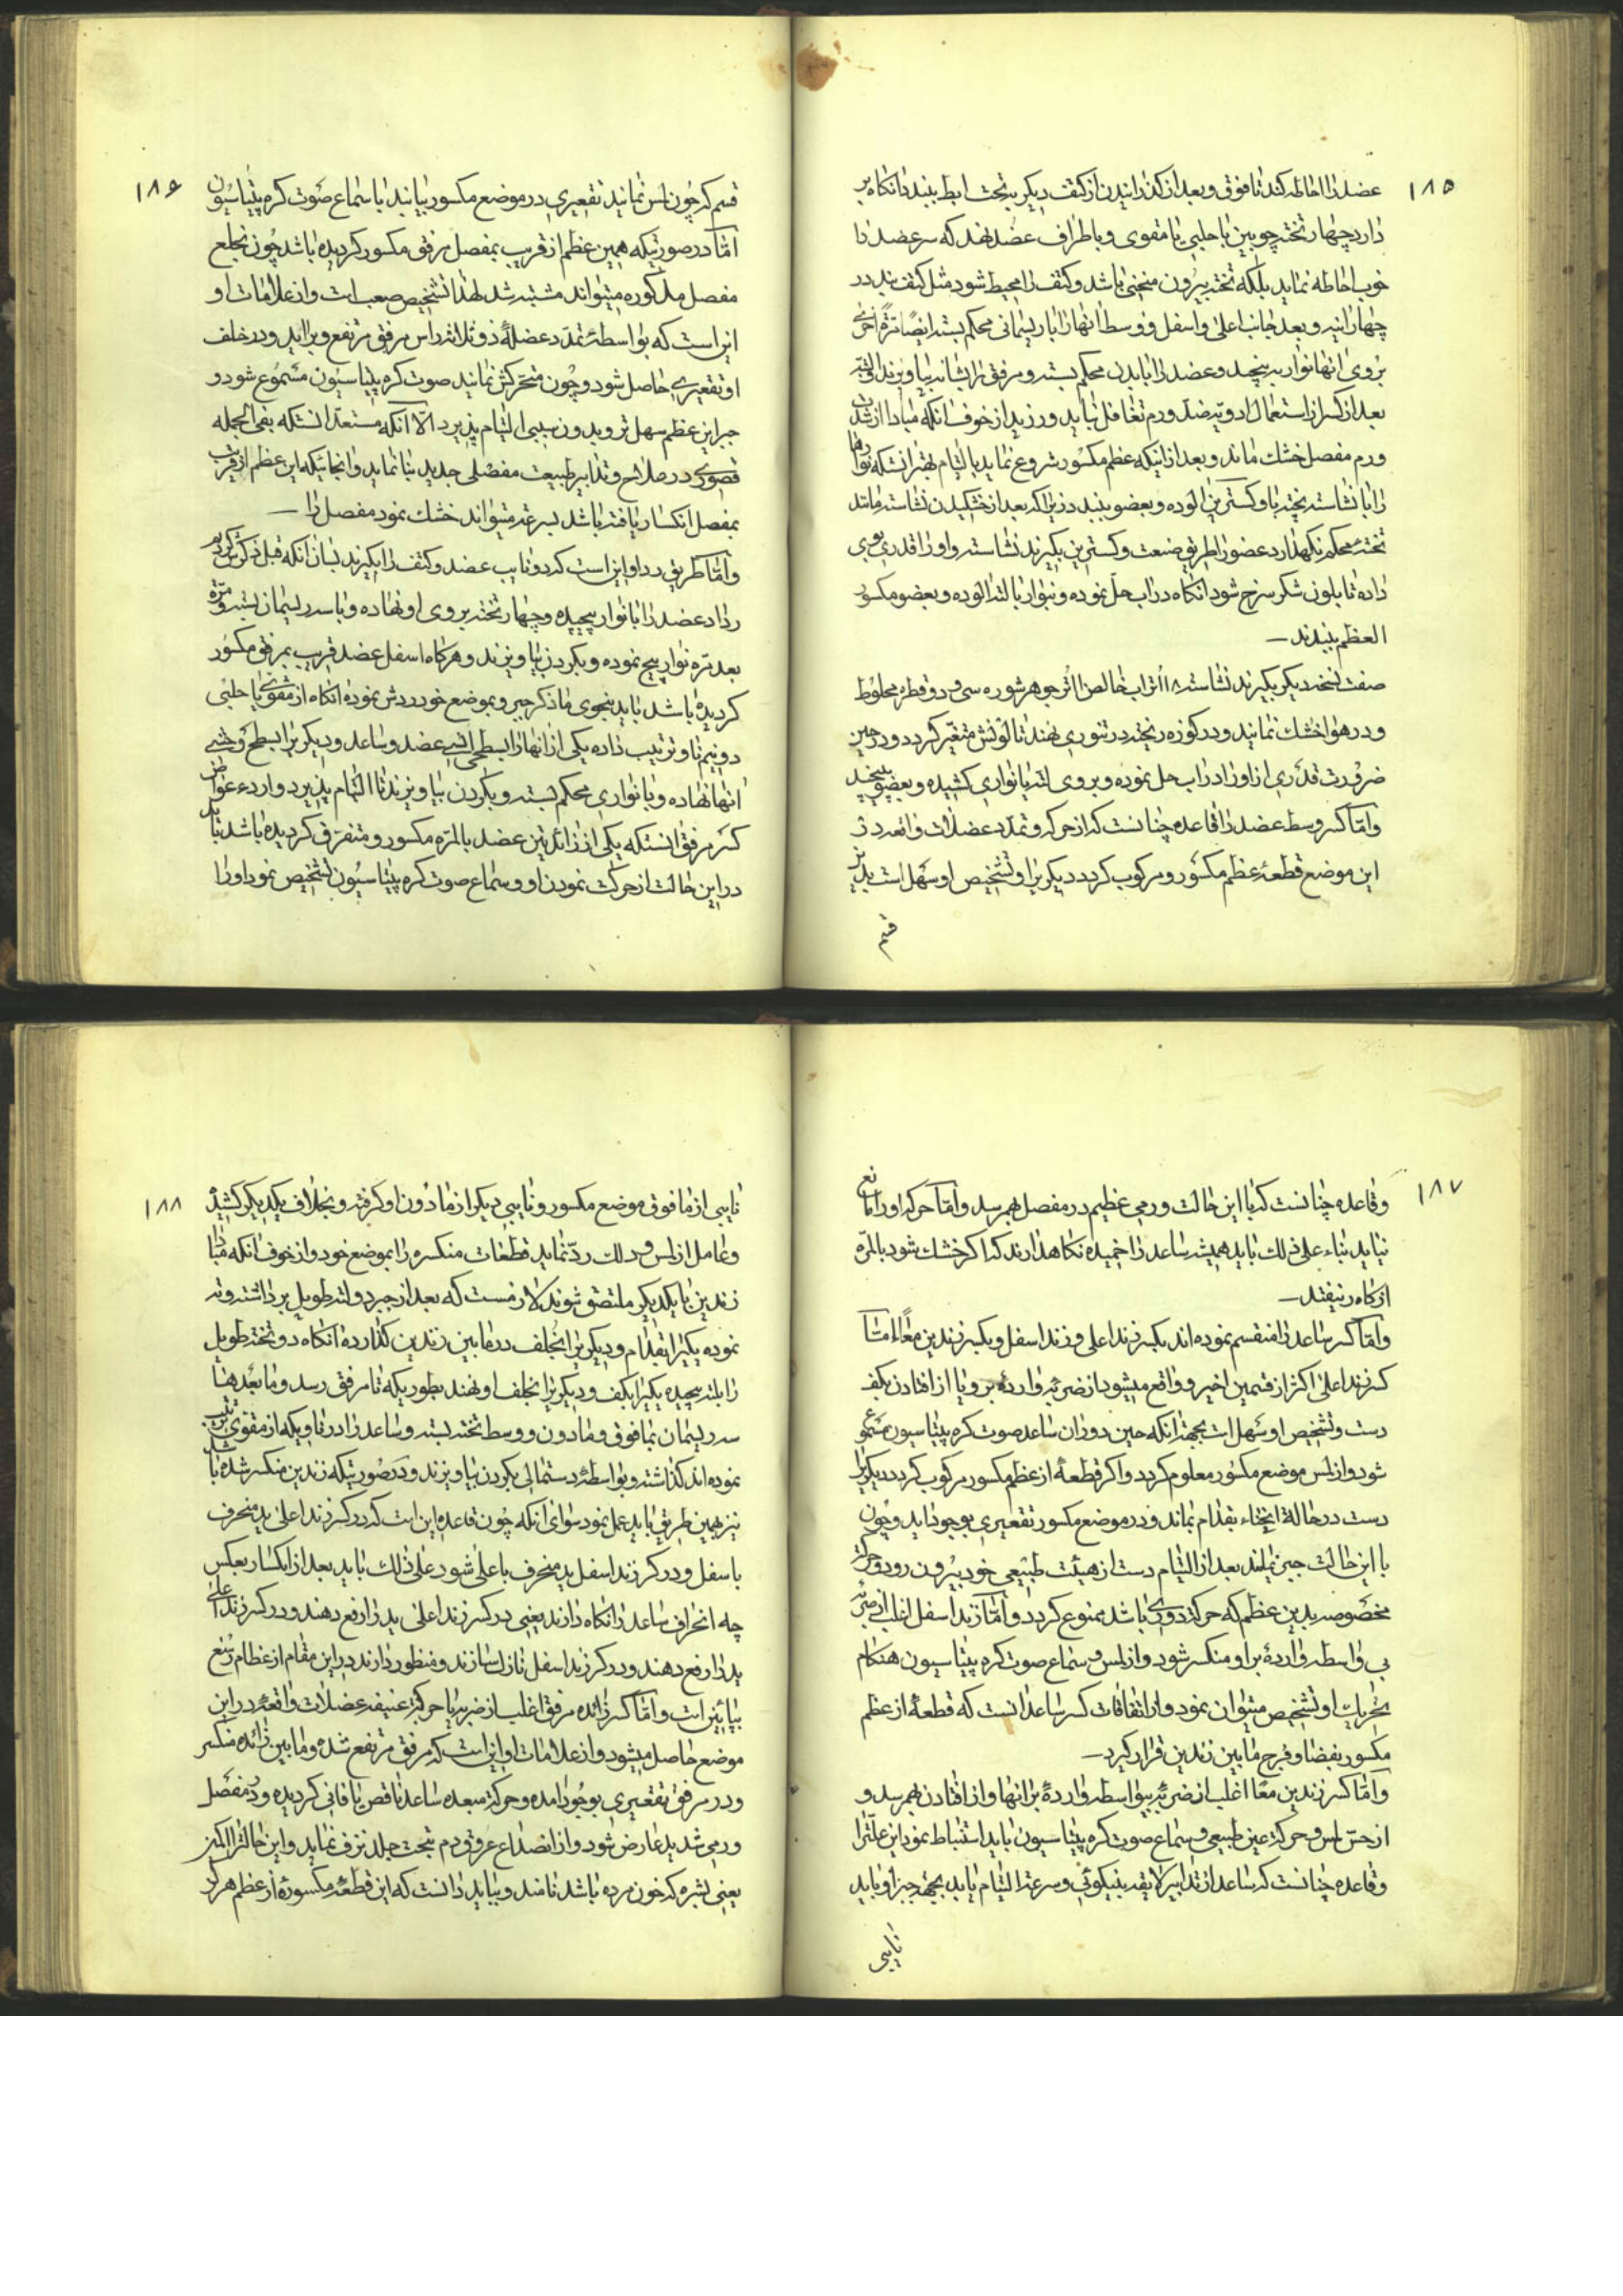 ۱۸۵
عضد را احاطه کند تا فوق و بعد از گذرانیدن از کتف دیگر بتحت ابط ببندد انکاه بر
دارد چهار تخته چوبین یا حلبی یا مقوی و باطراف عضد نهد که سر عضد را
خوب احاطه نماید بلکه تخته بیرون منحنی باشد و کتف را محیط شود مثل کتف بند در
چهار اینه و بعد جانب اعلی و اسفل و وسط انها را با ریسمانی محکم بسته ایضا مرة اخری
بروی انها نوار به پیچد و عضد را ببدن محکم بسته و مرفق را بشانه بیاویزند
بعد از کسر از استعمال ادویه ضد ورم تغافل نباید ورزید از خوف انکه مبادا از شدت
ورم مفصل خشک ماند و بعد از اینکه عظم مکسور شروع نماید بالتیام بهتر انست که نوارها
را با نشاسته پخته یا دکسترین الوده و بعضو ببندد زیرا که بعد از خشکیدن نشاسته مانند
تخته محکم نکهدارد عضو را طریق صنعت دکسترین بکیرند نشاسته و او را قدری بوی
داده تا بلون شکر سرخ شود انکاه در اب حل نموده و نوار یا لته الوده و بعضو مکسور
العظم ببندند
صفت نسخه دیکر بکیرند نشاسته ۱۸ اثر اب خالص ۱۱ اثر جوهر شوره سی و دو قطره مخلوط
و در هوا خشک نمایند و در کوزه ریخته در تنوری نهند تا لونش متغیر کردد و در حین
ضرورت قدری از او را در اب حل نموده و بروی لته یا نواری کشیده و بعضو پیچند
و اما کسر وسط عضد را قاعده چنانست که از حرکه و تمدد عضلات واقعه در
این موضع قطعه عظم مکسور و مرکوب کردد دیکریرا و تشخیص او سهل است بدین
قسم
۱۸۶
قسم که چون لمس نمایند تقعیری در موضع مکسور بیابند یا سماع صوت کره پیتاسیون
اما در صورتیکه همین عظم از قریب بمفصل مرفق مکسور کردیده باشد چون بخلع
مفصل مذکوره میتواند مشتبه شد لهذا تشخیص صعب است و از علامات او
این است که بواسطهٔ تمدد عضلهٔ ذو ثلاثه راس مرفق مرتفع و برا اید و در خلف
او تقعیری حاصل شود و چون متحرکش نمایند صوت کره پیتاسیون مسموع شود و
جبر این عظم سهل تر و بدون سببی التیام پذیرد الا آنکه مستعد انستکه بفی الجمله
قصوری در علاج و تدابیر طبیعت مفصلی جدید بنا نماید و انجائیکه این عظم از قریب
بمفصل انکسار یافته باشد بسرعة میتواند خشک نمود مفصل را
و اما طریق رد او این است که دو نایب عضد و کتف را بکیرند بسان انکه قبل ذکرش کردیم
رد از عضد را با نوار پیچیده و چهار تخته بروی او نهاده و با سه ریسمان بسته و مرة
بعد مرة نوار پیچ نموده و بکردن بیاویزند و هر کاه اسفل عضد قریب بمرفق مکسور
کردیده باشد باید بنحوی ما ذکر جبر و بموضع خود ردش نموده انکاه از مقوی یا حلبی
دو نیم ناو ترتیب داده یکی از انها را بسطحی انسی عضد و ساعد و دیکریرا بسطح وحشی
انها نهاده و با نواری محکم بسته و بکردن بیاویزند تا التیام پذیرد و ارده عوارض
کسر مرفق انستکه یکی از زائدتین عضد بالمره مکسور و متفرق کردیده باشد باید
در این حالت از حرکت نمودن او و سماع صوت کره پیتاسیون تشخیص نمود او را
۱۸۷
و قاعده چنانست که با این حالت ورمی عظیم در مفصل بهم رسد و اما حرکه او را مانع
نیاید بناء علی ذلک باید همیشه ساعد را خمیده نکاهدارند که اکر خشک شود بالمره
از کاه در نیفتد
و اما کسر ساعد را منقسم نموده اند بکسر زند اعلی و زند اسفل و بکسر زندین معا اما
کسر زند اعلی اکثر از قسمین اخیر و واقع میشود از ضربه وارده برو یا از افتادن بکف
دست و تشخیص او سهل است بجهة انکه حین دوران ساعد صوت کره پیتاسیون مسموع
شود و از لمس موضع مکسور معلوم کردد و اکر قطعهٔ از عظم مکسور مرکوب کردد دیکریرا
دست در حالة انحناء بقدام بماند و در موضع مکسور تقعیری بوجود اید و چون
با این حالت جبر نمایند بعد از التیام دست از هیئت طبیعی خود بیرون رود و حرکة
مخصوصه بدین عظم که حرکة دوری باشد ممنوع کردد و اما زند اسفل اغلب از ضربه
بی واسطه واردهٔ بر او منکسر شود و از لمس و سماع صوت کره پیتاسیون هنکام
تحریک او تشخیص میتوان نمود و از اتفاقات کسر ساعد انست که قطعهٔ از عظم
مکسور بفضا و فرج ما بین زندین قرار کیرد
و اما کسر زندین معا اغلب از ضربه بیواسطه واردهٔ بر انها و از افتادن بهم رسد و
از حس لمس و حرکة غیر طبیعی و سماع صوت کره پیتاسیون باید استنباط نمود این علت را
و قاعده چنانست که ساعد از تدابیر لایقه بنیکوئی و سرعة التیام یابد بجهة جبر او باید
نایبی
۱۸۸
نایبی از ما فوق موضع مکسور و نایبی دیکر از مادون او کرفته و بخلاف یکدیکر کشیده
و عامل از لمس و دلک رد نماید قطعات منکسره را بموضع خود و از خوف انکه مبادا
زندین با یکدیکر ملتصق شوند لازمست که بعد از جبر دو لته طویل برداشته و ته
نموده یکیرا بقدام و دیکریرا بخلف در ما بین زندین کذارده انکاه دو تخته طویل
را بلته پیچیده یکیرا بکف و دیکریرا بخلف او نهند بطوریکه تا مرفق رسد و ما بعدها
سه ریسمان بما فوق و مادون و وسط تخته بسته و ساعد را در ناویکه از مقوی ترتیب
نموده اند کذاشته و بواسطهٔ دستمالی بکردن بیاویزند و در صورتیکه زندین منکسر شده باشد
نیز بهمین طریق باید عمل نمود سوای انکه چون قاعده این است که در کسر زند اعلی ید منحرف
باسفل و در کسر زند اسفل ید منحرف باعلی شود علی ذلک باید بعد از انکسار بعکس
چله انحراف ساعد را نکاه دارند یعنی در کسر زند اعلی ید را رفع دهند و در کسر زند اعلی
ید را رفع دهند و در کسر زند اسفل نازل سازند و منظور دارند در این مقام از عظام رسغ
بپائین است و اما کسر زائده مرفق اغلب از ضربه یا حرکة عنیفه عضلات واقعه در این
موضع حاصل میشود و از علامات او این است که مرفق مرتفع شده و ما بین زائده منکسر
و در مرفق تقعیری بوجود امده و حرکة مبعده ساعد ناقص یا فانی کردیده و در مفصل
ورمی شدید عارض شود و از انصداع عروق دم بتحت جلد نزف نماید و این حالت را
یعنی بشره که خون مرده باشد نامند و بباید دانست که این قطعهٔ مکسورهٔ از عظم هرکز